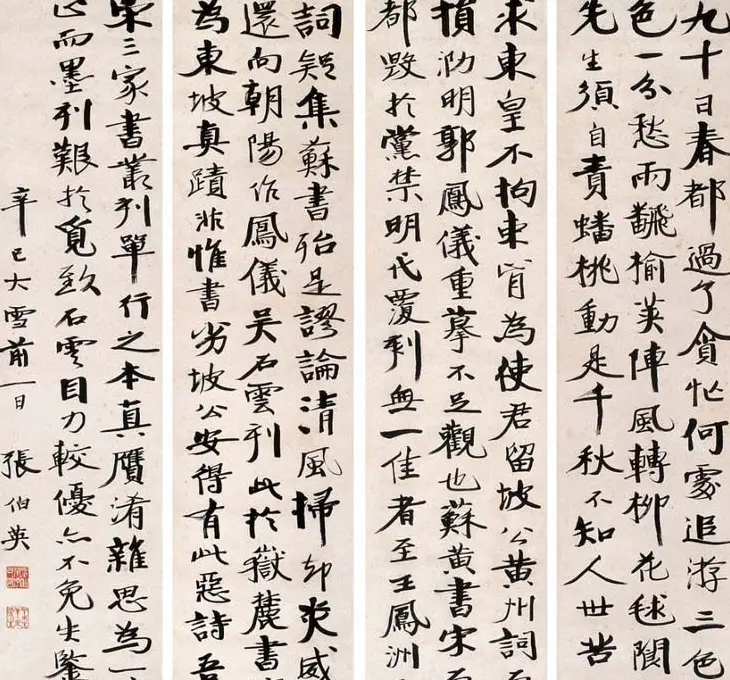 九十日春都過了貪忙何處追游三色
色一分愁雨翻榆莢陣風轉柳花毬閬
先生須自責蟠桃動是千秋不知人世苦
求東皇不拘束肯為使君留坡公黃州詞
損泐明郭鳳儀重摹不足觀也蘇黃書宋
都毀於黨禁明代覆刻無一佳者至王鳳洲
詞疑集蘇書殆是謬論清風掃卻炎威
還向朝陽作鳳儀吳石雲刻此於嶽麓書
為東坡真蹟非惟書劣坡公安得有此惡詩吾
宋三家書叢列單行之本真贗淆雜思為一
而墨刻艱於覓致石雲目力較優亦不免失鑒
辛巳大雪前一日 張伯英